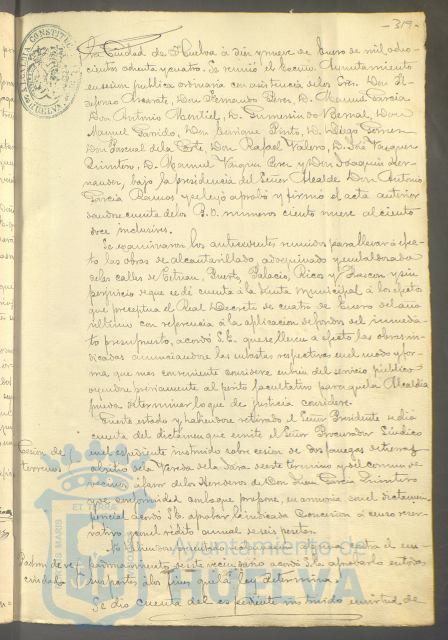 - 319 -
ALCALDIA CONSTITUCIONAL
En la Ciudad de Huelva á diez y nueve de Enero de mil ocho-
cientos ochenta y cuatro. Se reunió el Excmo. Ayuntamiento
en sesion publica ordinaria con asistencia de los Sres. Don Il-
defonso Don Fernando Perez, D. Manuel Garcia
Don Antonio Montiel, D. Gumersindo Bernal, Don
Manuel Garrido, Don Enrique Pinto, D. Diego
Don Pascual de la Corte, Don Rafael Valero, D. José Vazquez
Quintero, D. Manuel Vazquez Perez y Don Joaquin Her-
nandez, bajo la presidencia del Señor Alcalde Don Antonio
Garcia Ramos y se leyó aprobó y firmó el acta anterior
dandose cuenta de los B. O. numeros ciento nueve al ciento
doce inclusives.
Se examinaron los antecedentes reunidos para llevar á efec-
to las obras de alcantarillado, adoquinado y embaldosado
de las calles de Puerto, Palacio, Ricos y Rascon y sin
perjuicio de que se dé cuenta á la Junta Municipal á los efectos
que preceptua el Real Decreto de cuatro de Enero del año
ultimo con referencia á la aplicacion de fondos del inmedia-
to presupuesto, acordó S.E. que se lleven á efecto las obras in-
dicadas anunciandose las subastas respectivas en el modo y for-
ma que mas conveniente considere en bien del servicio publico
oyendose previamente al perito facultativo para que la Alcaldia
pueda determinar lo que de justicia considere.
En este estado y habiendose retirado el Señor Presidente se dió
Cesion de
cuenta del dictamen que emite el Señor Procurador Sindico
terrenos
en el espediente instruido sobre cesion de dos fanegas de tierra
al sitio de la Vereda de la de este termino y del comun de
vecinos á favor de los Herederos de Don Juan Garcia Quintero
y de conformidad con lo que propone, en armonia con el dictamen
pericial acordó S.E. aprobar la indicada concesion á censo reser-
vativo con el rédito anual de seis pesetas.
No habiendose producido contra el em-
Padron de ve-
padronamiento de este vecindario acordó S.E. aprobarlo en todas
cindad
sus partes á los fines que la ley determina.
Se dio cuenta del espediente instruido en virtud de
PORTUS MARIS ET TERRÆ CUSTODIA
Ayuntamiento de
HUELVA